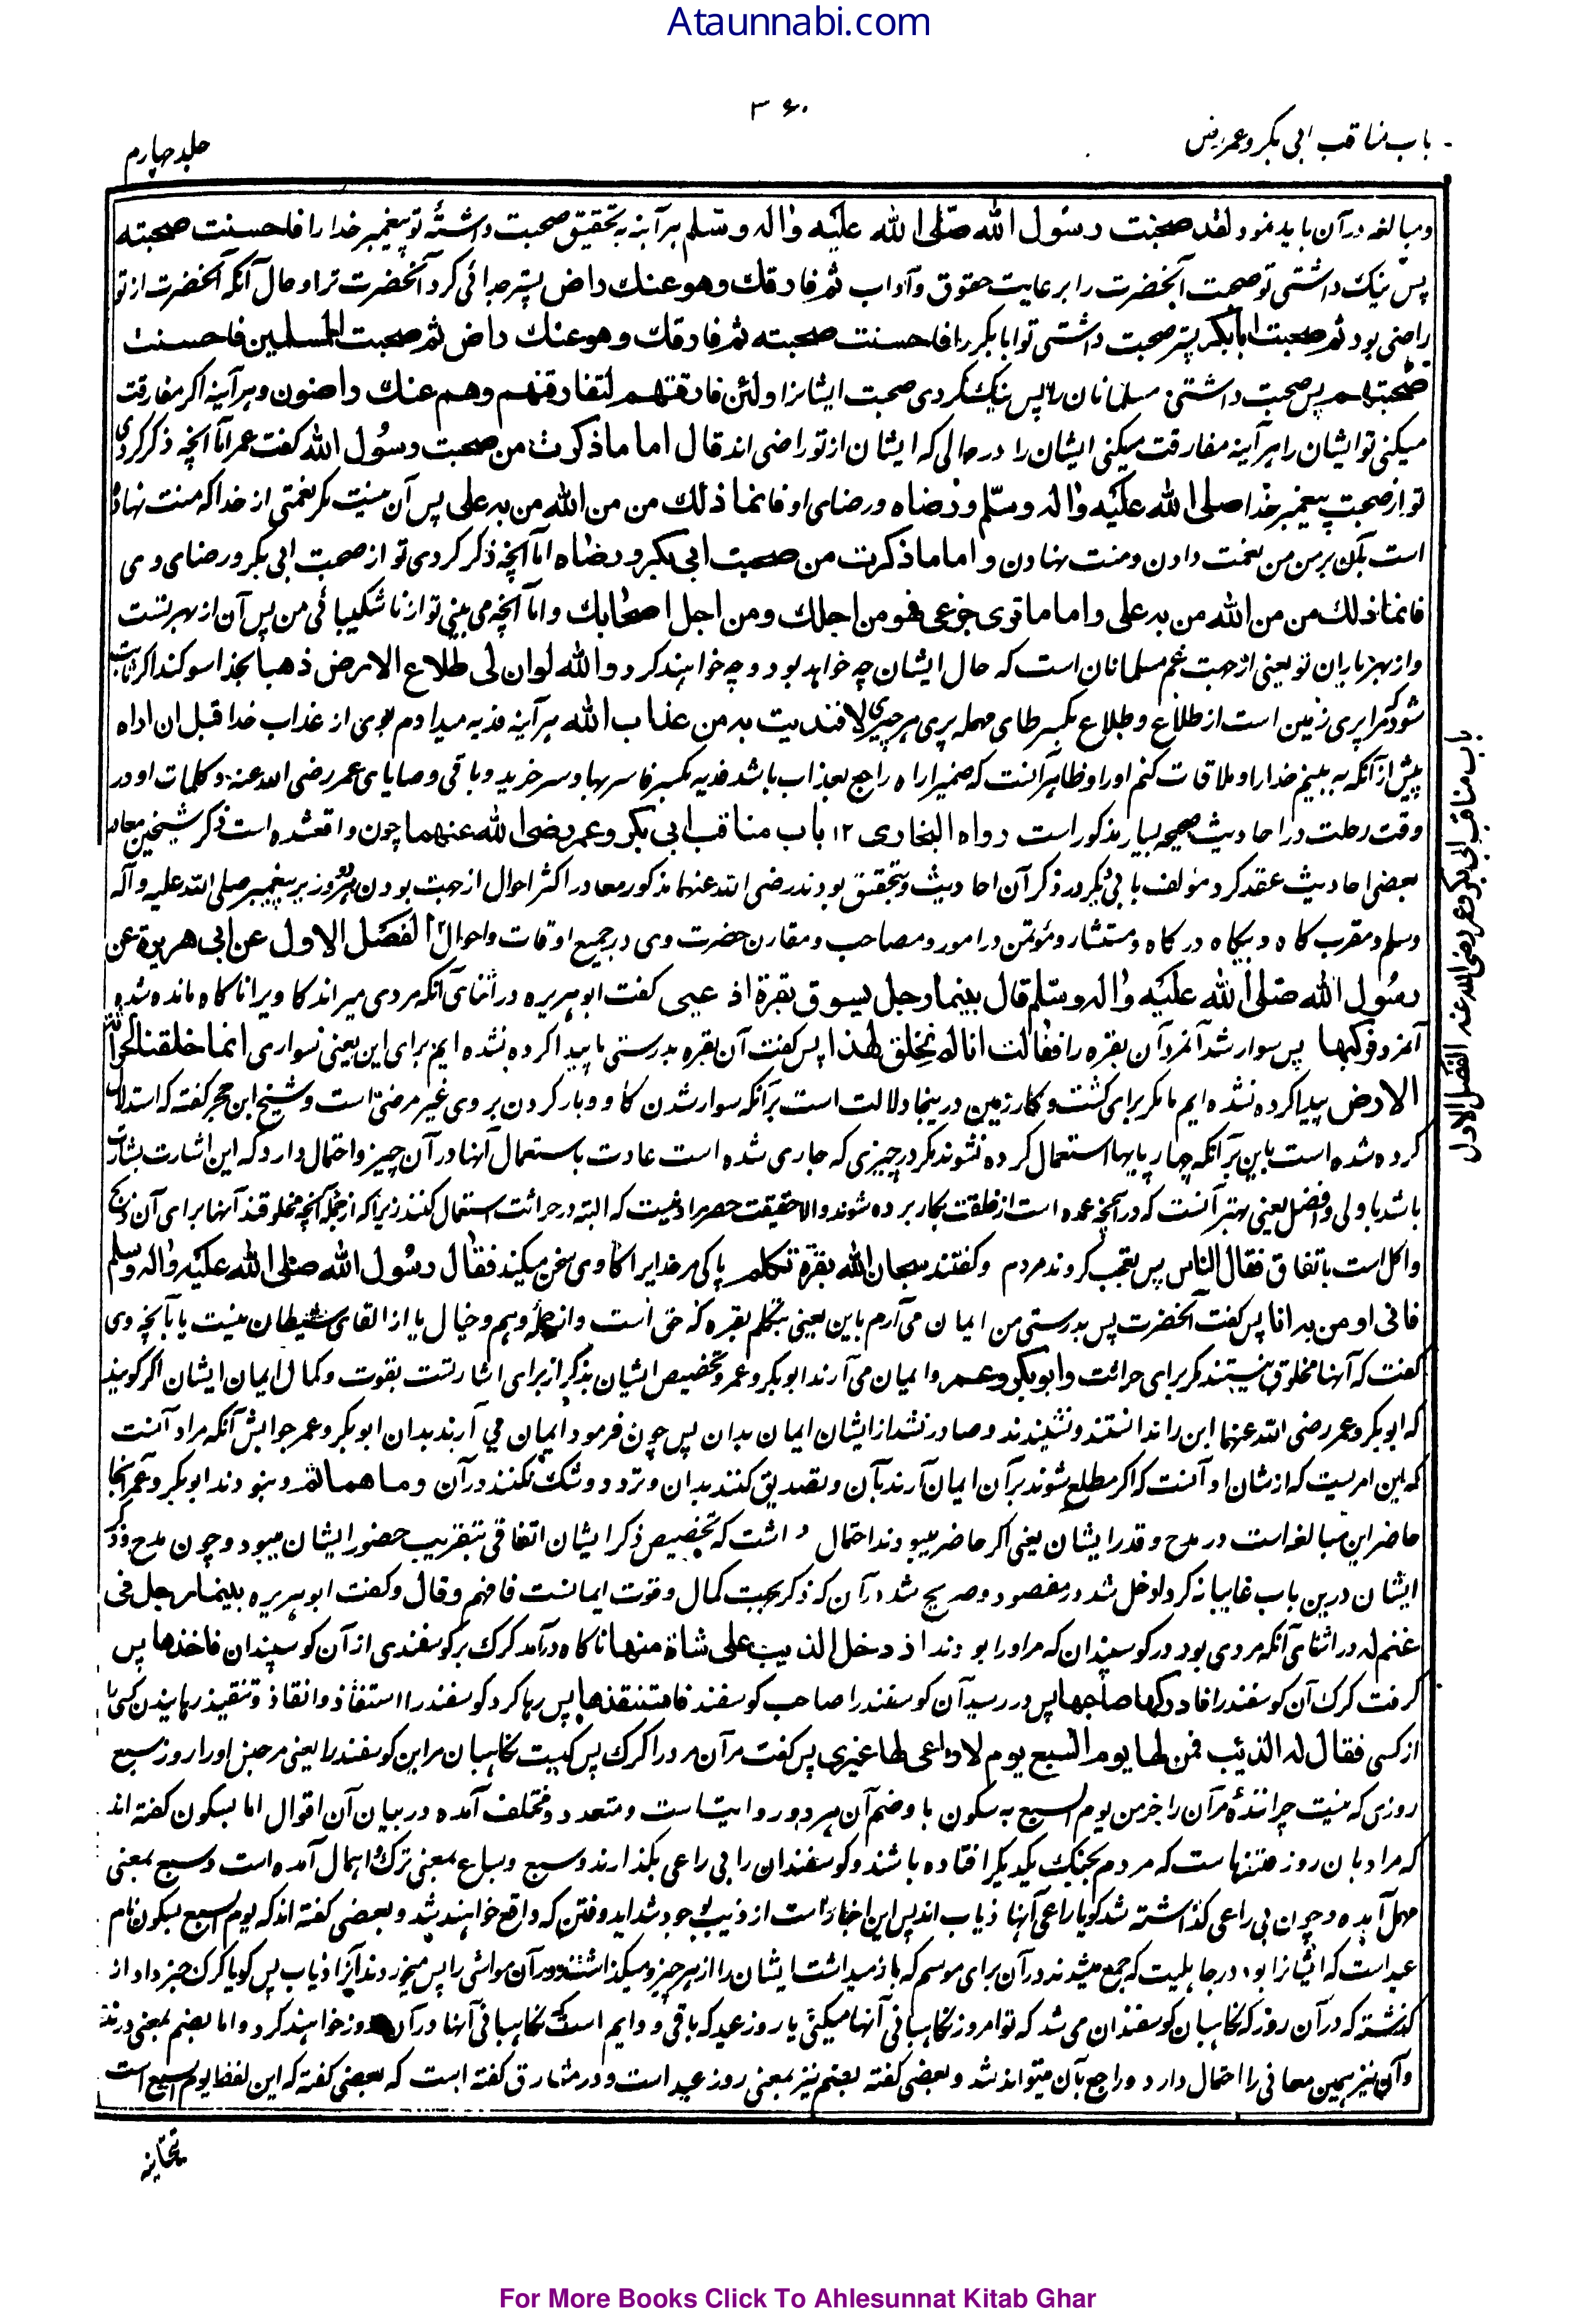 Ataunnabi.com
۳۶۰
باب مناقب ابی بکر و عمر رض
جلد چهارم
ومبالغه در آن باید نمود لقد صحبت رسول الله صلی الله علیه واله وسلم هرآینه بتحقیق صحبت داشتهٔ تو پیغمبر خدا را فاحسنت صحبته
پس نیک داشتی تو صحبت آنحضرت را برعایت حقوق و آداب ثم فارقك وهو عنك راض پستر جدائی کرد آنحضرت ترا و حال آنکه آنحضرت از تو
راضی بود ثم صحبت ابابکر پستر صحبت داشتی تو ابابکر را فاحسنت صحبته ثم فارقك وهو عنك راض ثم صحبت المسلمین فاحسنت
صحبتهم پس صحبت داشتی مسلمانان را پس نیک کردی صحبت ایشانرا ولئن فارقتهم لتفارقنهم وهم عنك راضون وهرآینه اکر مفارقت
میکنی تو ایشان را هرآینه مفارقت میکنی ایشان را در حالی که ایشان از تو راضی اند قال اما ماذکرت من صحبت رسول الله کفت عمر اما آنچه ذکر کردی
تو از صحبت پیغمبر خدا صلی الله علیه واله وسلم ورضاه ورضای او فانما ذلك من من الله من به علی پس آن نیست مکر نعمتی از خدا که منت نهاده
است بآن بر من من نعمت دادن ومنت نهادن واما ماذکرت من صحبت ابی بکر ورضاه اما آنچه ذکر کردی تو از صحبت ابی بکر ورضای وی
فانما ذلك من من الله من به علی واما ماتری جزعی فهو من اجلك ومن اجل اصحابك واما آنچه می بینی تو از ناشکیبائی من پس آن از بهر تست
واز بهر یاران تو یعنی از جهت غم مسلمانان است که حال ایشان چه خواهد بود وچه خواهند کرد والله لوان لی طلاع الارض ذهبا بخدا سوکند اکر ثابت
شود مرا پری زمین است از طلاع وطلاع بکسر طای مهمله پری هر چیزی لافتدیت به من عذاب الله هرآینه فدیه میدادم بوی از عذاب خدا قبل ان اراه
پیش از آنکه به بینم خدارا و ملاقات کنم اورا وظاهر آنست که ضمیر اراه راجع بعذاب باشد فدیه بکسر فا سربها وسرخرید وباقی وصایای عمر رضی الله عنه وکلمات او در
وقت رحلت در احادیث صحیحه بسیار مذکور است رواه البخاری ۱۲ باب مناقب ابی بکر وعمر رضی الله عنهما چون واقع شده است ذکر شیخین معا در
بعضی احادیث عقد کرد مؤلف بابی دیگر در ذکر آن احادیث وبتحقیق بودند رضی الله عنهما مذکور معا در اکثر احوال از جهت بودن هر دو وزیر پیغمبر صلی الله علیه وآله
وسلم ومقرب کاه وبیکاه در کاه ومستشار ومؤتمن در امور ومصاحب ومقارن حضرت وی در جمیع اوقات واحوال الفصل الاول عن ابی هریرة عن
رسول الله صلی الله علیه واله وسلم قال بینما رجل یسوق بقرة اذ عیی کفت ابوهریره در اثنای آنکه مردی میراند کاویرا ناکاه مانده شد
آنمرد فرکبها پس سوار شد آنمرد آن بقره را فقالت انا لم نخلق لهذا پس کفت آن بقره بدرستی ما پیدا کرده نشده ایم برای این یعنی سواری انما خلقنا لحراثة
الارض پیدا کرده نشده ایم ما مکر برای کشت وکار زمین درینجا دلالت است برآنکه سوار شدن کاو وبار کردن بر وی غیر مرضی است وشیخ ابن حجر کفته که استدلال
کرده شده است باین برآنکه چهارپایها استعمال کرده نشوند مکر در چیزی که جاری شده است عادت باستعمال آنها در آن چیز واحتمال دارد که این اشارت بشارت
باشد باولی وافضل یعنی بهتر آنست که در آنچه عمده است از خلقت بکار برده شوند والا حقیقت حصر مراد نیست که البته در حراثت استعمال کنند زیرا که از جمله آنچه مخلوقند آنها برای آن ذبح
واکل است باتفاق فقال الناس پس تعجب کردند مردم وکفتند سبحان الله بقرة تکلم پاکی مر خدایرا کاوی سخن میکند فقال رسول الله صلی الله علیه واله وسلم
فانی اومن به انا پس کفت آنحضرت پس بدرستی من ایمان می آرم باین یعنی بتکلم بقره که حق است واز جملهٔ وهم وخیال یا از القای شیطان نیست یا بآنچه وی
کفت که آنها مخلوق نیستند مکر برای حراثت وابوبکر وعمر وایمان می آرند ابوبکر وعمر وتخصیص ایشان بذکر از برای اشارتست بقوت وکمال ایمان ایشان اکر کویند
که ابوبکر وعمر رضی الله عنهما این را ندانستند ونشنیدند وصادر نشد از ایشان ایمان بدان پس چون فرمود ایمان می آرند بدان ابوبکر وعمر جوابش آنکه مراد آنست
که این امریست که از شان او آنست که اکر مطلع شوند برآن ایمان آرند بآن وتصدیق کنند بدان وتردد وشک نکنند در آن وما هما ثم ونبودند ابوبکر وعمر آنجا
حاضر این مبالغه است در مدح وقدر ایشان یعنی اکر حاضر میبودند احتمال داشت که تخصیص ذکر ایشان اتفاقی بتقریب حضور ایشان میبود وچون مدح وذکر
ایشان درین باب غایبانه کرد ادخل شد در مقصود وصریح شد در آن که ذکر بجهت کمال وقوت ایمانست فافهم وقال وکفت ابوهریره بینما رجل فی
غنم له در اثنای آنکه مردی بود در کوسپندان که مر اورا بودند اذ دخل الذیب علی شاة منها ناکاه درآمد کرک بر کوسفندی از آن کوسپندان فاخذها پس
کرفت کرک آن کوسفند را فادرکها صاحبها پس دررسید آن کوسفند را صاحب کوسفند فاستنقذها پس رها کرد کوسفند را استنقاذ وانقاذ وتنقیذ رهانیدن کسی را
از کسی فقال له الذئب فمن لها یوم السبع یوم لا راعی لها غیری پس کفت مر آن مرد را کرک پس کیست نکاهبان مر این کوسفند را یعنی مر جنس اورا روز سبع
روزی که نیست چرانندهٔ مر آن را جز من یوم السبع به سکون با وضم آن هر دو روایت است ومتعدد ومختلف آمده در بیان آن اقوال اما بسکون کفته اند
که مراد بآن روز فتنهاست که مردم بجنک یکدیکر افتاده باشند وکوسفندان را بی راعی بکذارند وسبع وسباع بمعنی ترک واهمال آمده است وسبع بمعنی
مهمل آمده وچون بی راعی کذاشته شد کویا راعی آنها ذیاب اند پس این اخبار است از ذیب بوجود شداید وفتن که واقع خواهند شد وبعضی کفته اند که یوم السبع بسکون نام
عید است که ایشانرا بود در جاهلیت که جمع میشدند در آن برای موسم که باز میداشت ایشان را از هر چیز ومیکذاشتند در آن مواشی را پس میخوردند آنرا ذیاب پس کویا کرک خبر داد از
کذشته که در آن روز که نکاهبان کوسفندان می شد که تو امروز نکاهبانی آنها میکنی یا روز عید که باقی ودایم است که نکاهبانی آنها در آن روز خواهند کرد واما بضم بمعنی درنده
وآن نیز همین معانی را احتمال دارد وراجع بآن میتواند شد وبعضی کفته بضم نیز بمعنی روز عید است ودر مشارق کفته است که بعضی کفته که این لفظ یوم السبع است
باب مناقب ابی بکر وعمر رضی الله عنه الفصل الاول
For More Books Click To Ahlesunnat Kitab Ghar